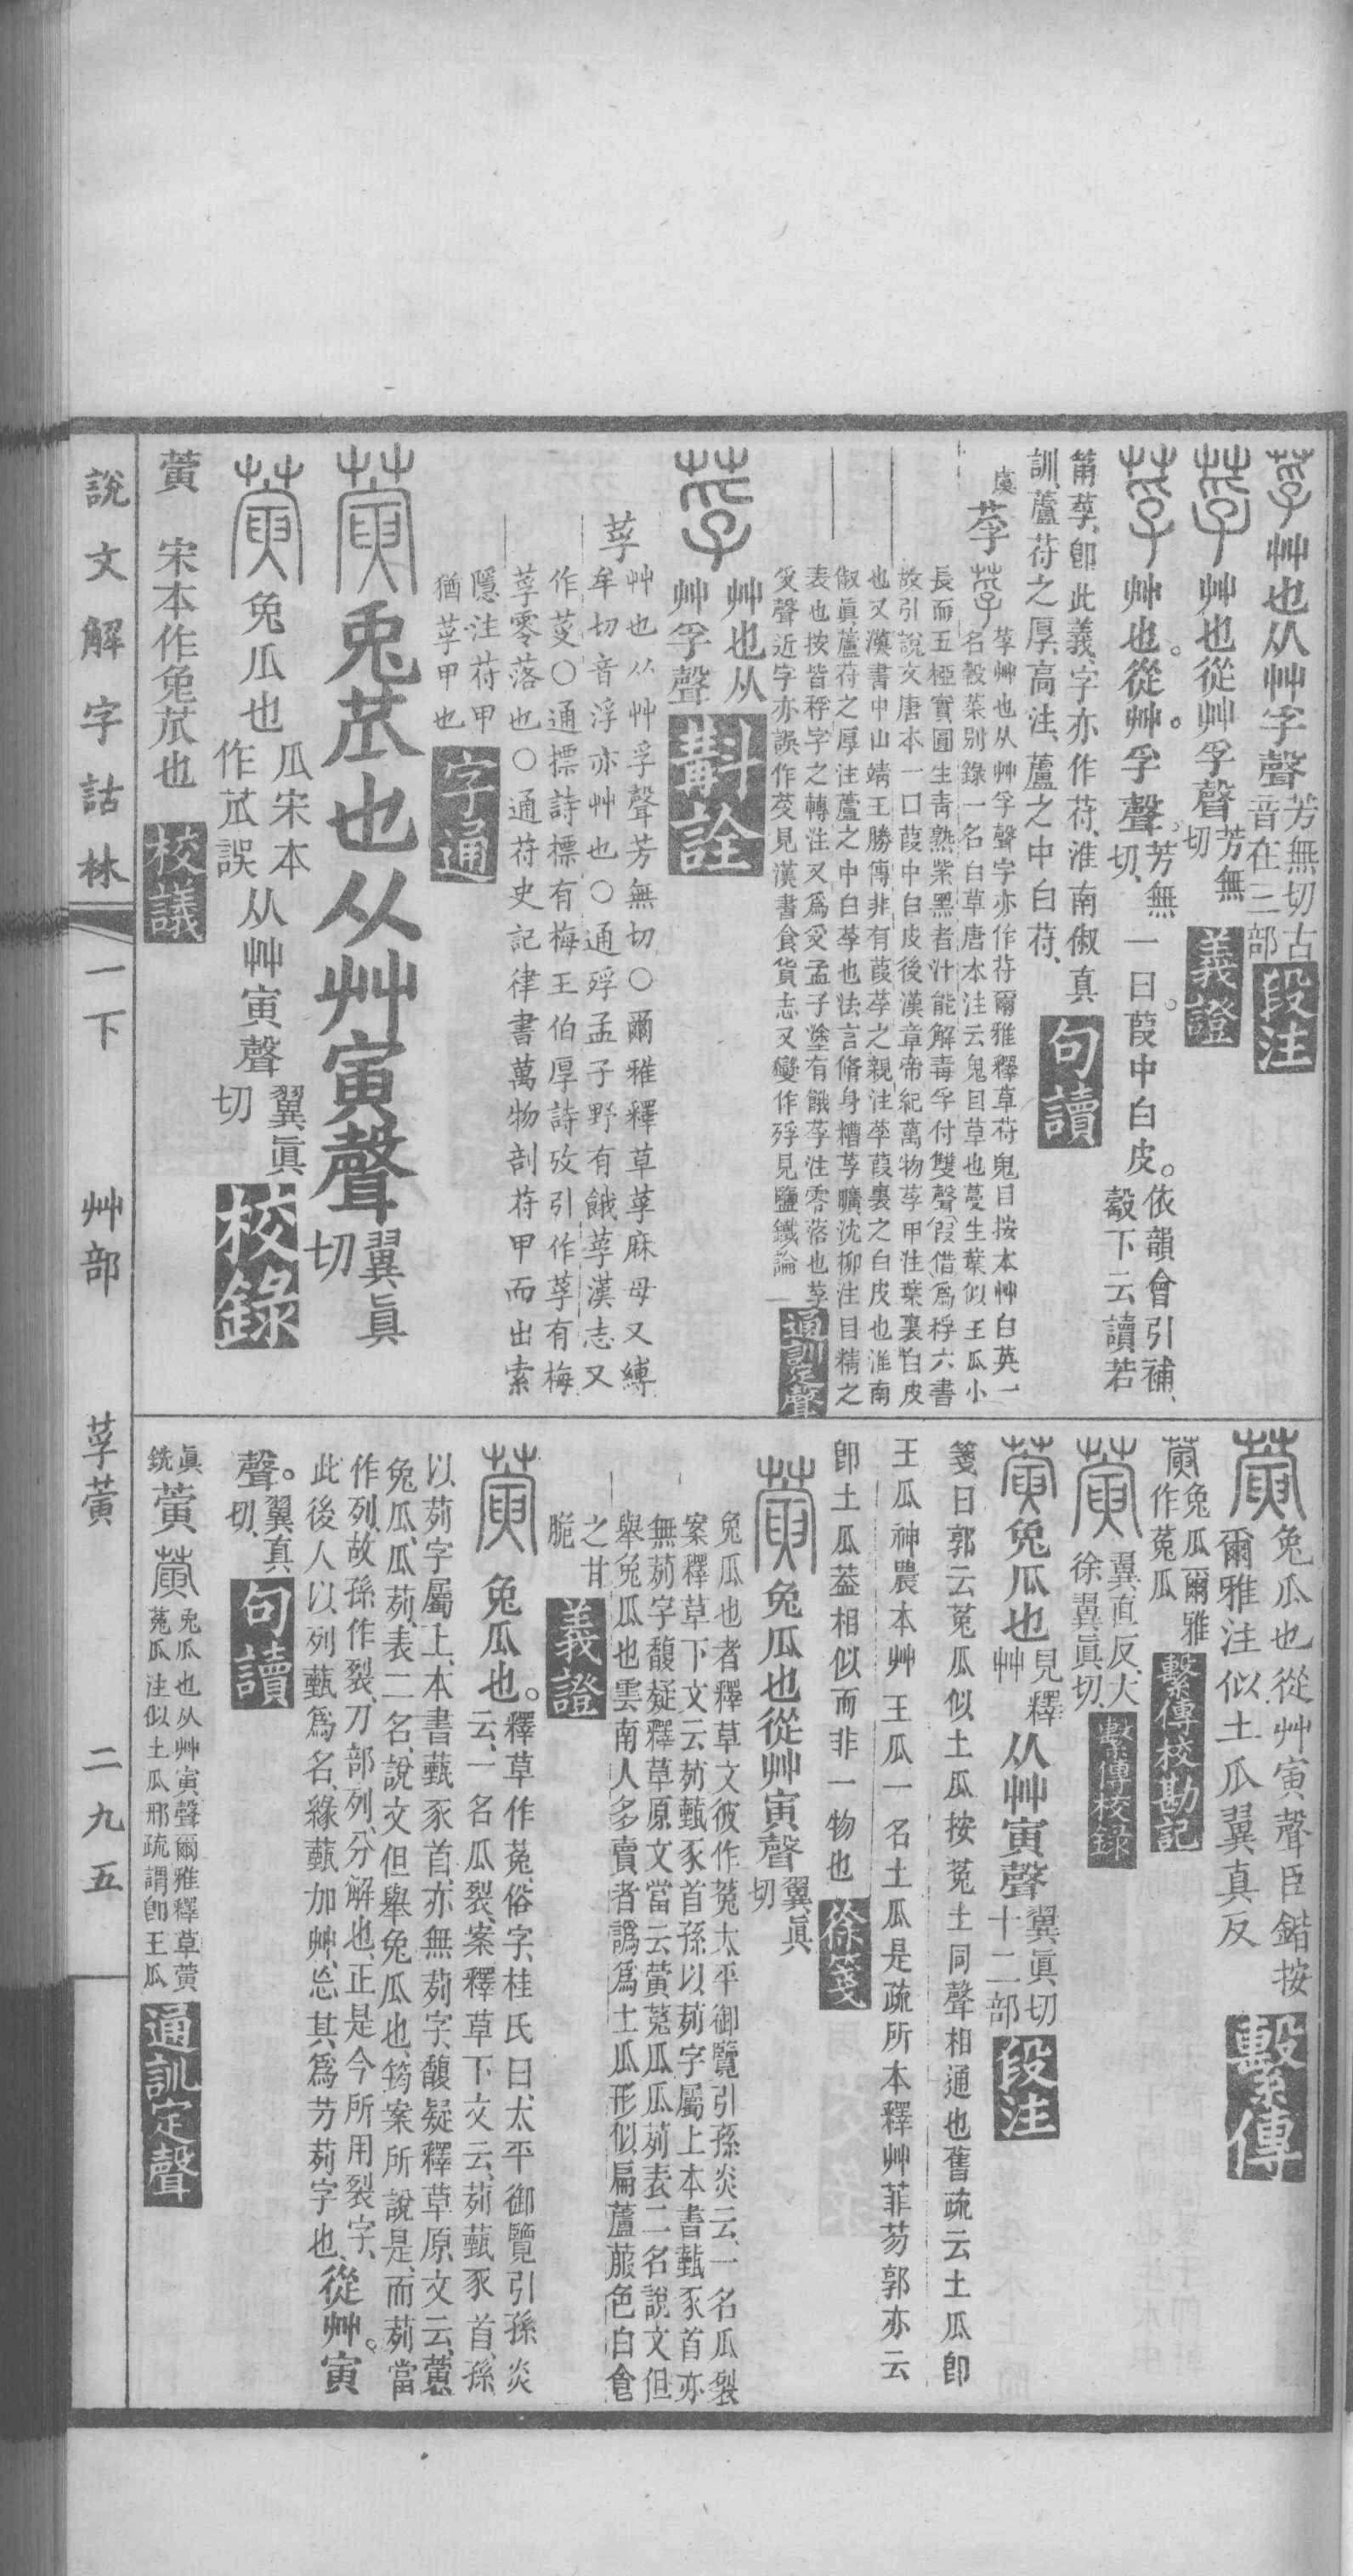 莩 艸也从艸孚聲芳無切古音在三部 段注
莩 艸也從艸孚聲芳無切 義證
莩 艸也。從艸。孚聲。芳無切、一曰。葭中白皮。依韻會引補、㝅下云讀若
莆莩、卽此義、字亦作苻、淮南俶真
訓、蘆苻之厚、高注、蘆之中白苻、 句讀
虞
莩 莩 莩艸也从艸孚聲字亦作苻爾雅釋草苻鬼目按本艸白英一
名穀菜別錄一名白草唐本注云鬼目草也蔓生葉似王瓜小
長而五椏實圓生青熟紫黑者汁能解毒孚付雙聲〔叚借〕爲稃六書
故引說文唐本一曰葭中白皮後漢章帝紀萬物莩甲注葉裏白皮
也又漢書中山靖王勝傳非有葭莩之親注莩葭裏之白皮也淮南
俶眞蘆苻之厚注蘆之中白莩也法言脩身糟莩曠沈柳注目精之
表也按皆稃字之轉注又爲受孟子塗有餓莩注零落也莩
受聲近字亦誤作芆見漢書食貨志又變作殍見鹽鐵論 通訓定聲
莩 艸也从艸孚聲 斠詮
莩 艸也从艸孚聲芳無切〇爾雅釋草莩麻母又縛
牟切音浮亦艸也〇通殍孟子野有餓莩漢志又
作芆〇通摽詩摽有梅王伯厚詩攷引作莩有梅
莩零落也〇通苻史記律書萬物剖苻甲而出索
隱注苻甲
猶莩甲也 字通
黃 兎苽也从艸寅聲翼眞切
黃 兔瓜也瓜宋本作苽誤从艸寅聲翼眞切 校錄
䔬 宋本作兔苽也 校議
䔬 兔瓜也從艸寅聲臣鍇按
爾雅注似土瓜翼真反 繫傳
䔬 兔瓜爾雅作菟瓜 繫傳校勘記
䔬 翼直反、大徐翼眞切、 繫傳校錄
䔬 兔瓜也見釋艸从艸寅聲翼眞切十二部 段注
箋曰郭云菟瓜似土瓜按菟土同聲相通也舊疏云土瓜卽
王瓜神農本艸王瓜一名土瓜是疏所本釋艸菲芴郭亦云
卽土瓜葢相似而非一物也 徐箋
䔬 兔瓜也從艸寅聲翼眞切
兔瓜也者釋草文彼作菟太平御覽引孫炎云、一名瓜裂
案釋草下文云茢薽豕首孫以茢字屬上本書薽豕首亦
無茢字馥疑釋草原文當云䔬菟瓜瓜茢表二名說文但
舉兔瓜也雲南人多賣者譌爲土瓜形似扁蘆菔色白食
之甘
脆 義證
䔬 兔瓜也。釋草作菟、俗字、桂氏曰、太平御覽引孫炎
云、一名瓜裂、案釋草下文云、茢薽豕首、孫
以茢字屬上、本書薽豕首、亦無茢字、馥疑釋草原文云、䔬
兔瓜、瓜茢、表二名、說文但舉兔瓜也、筠案所說是、而茢當
作列、故孫作裂、刀部列、分解也、正是今所用裂字、
此後人以列薽爲名、緣薽加艸、忘其爲芀茢字也、從艸。寅
聲。翼真切、 句讀
真
銑 䔬 䔬 兎瓜也从艸寅聲爾雅釋草䔬
菟瓜注似土瓜邢疏謂卽王瓜 通訓定聲
說文解字詁林 一下 艸部 莩䔬 二九五